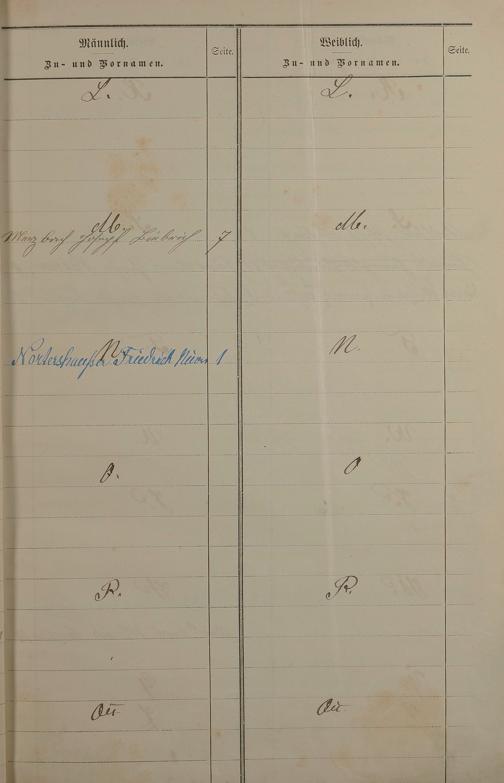 Männlich.
Zu- und Vornamen.
Seite.
L.
M.
Merzbach Joseph 7
N
Friedrich 1
O.
P.
Qu
Weiblich.
Zu- und Vornamen.
Seite.
L.
M.
N.
O
P.
Qu